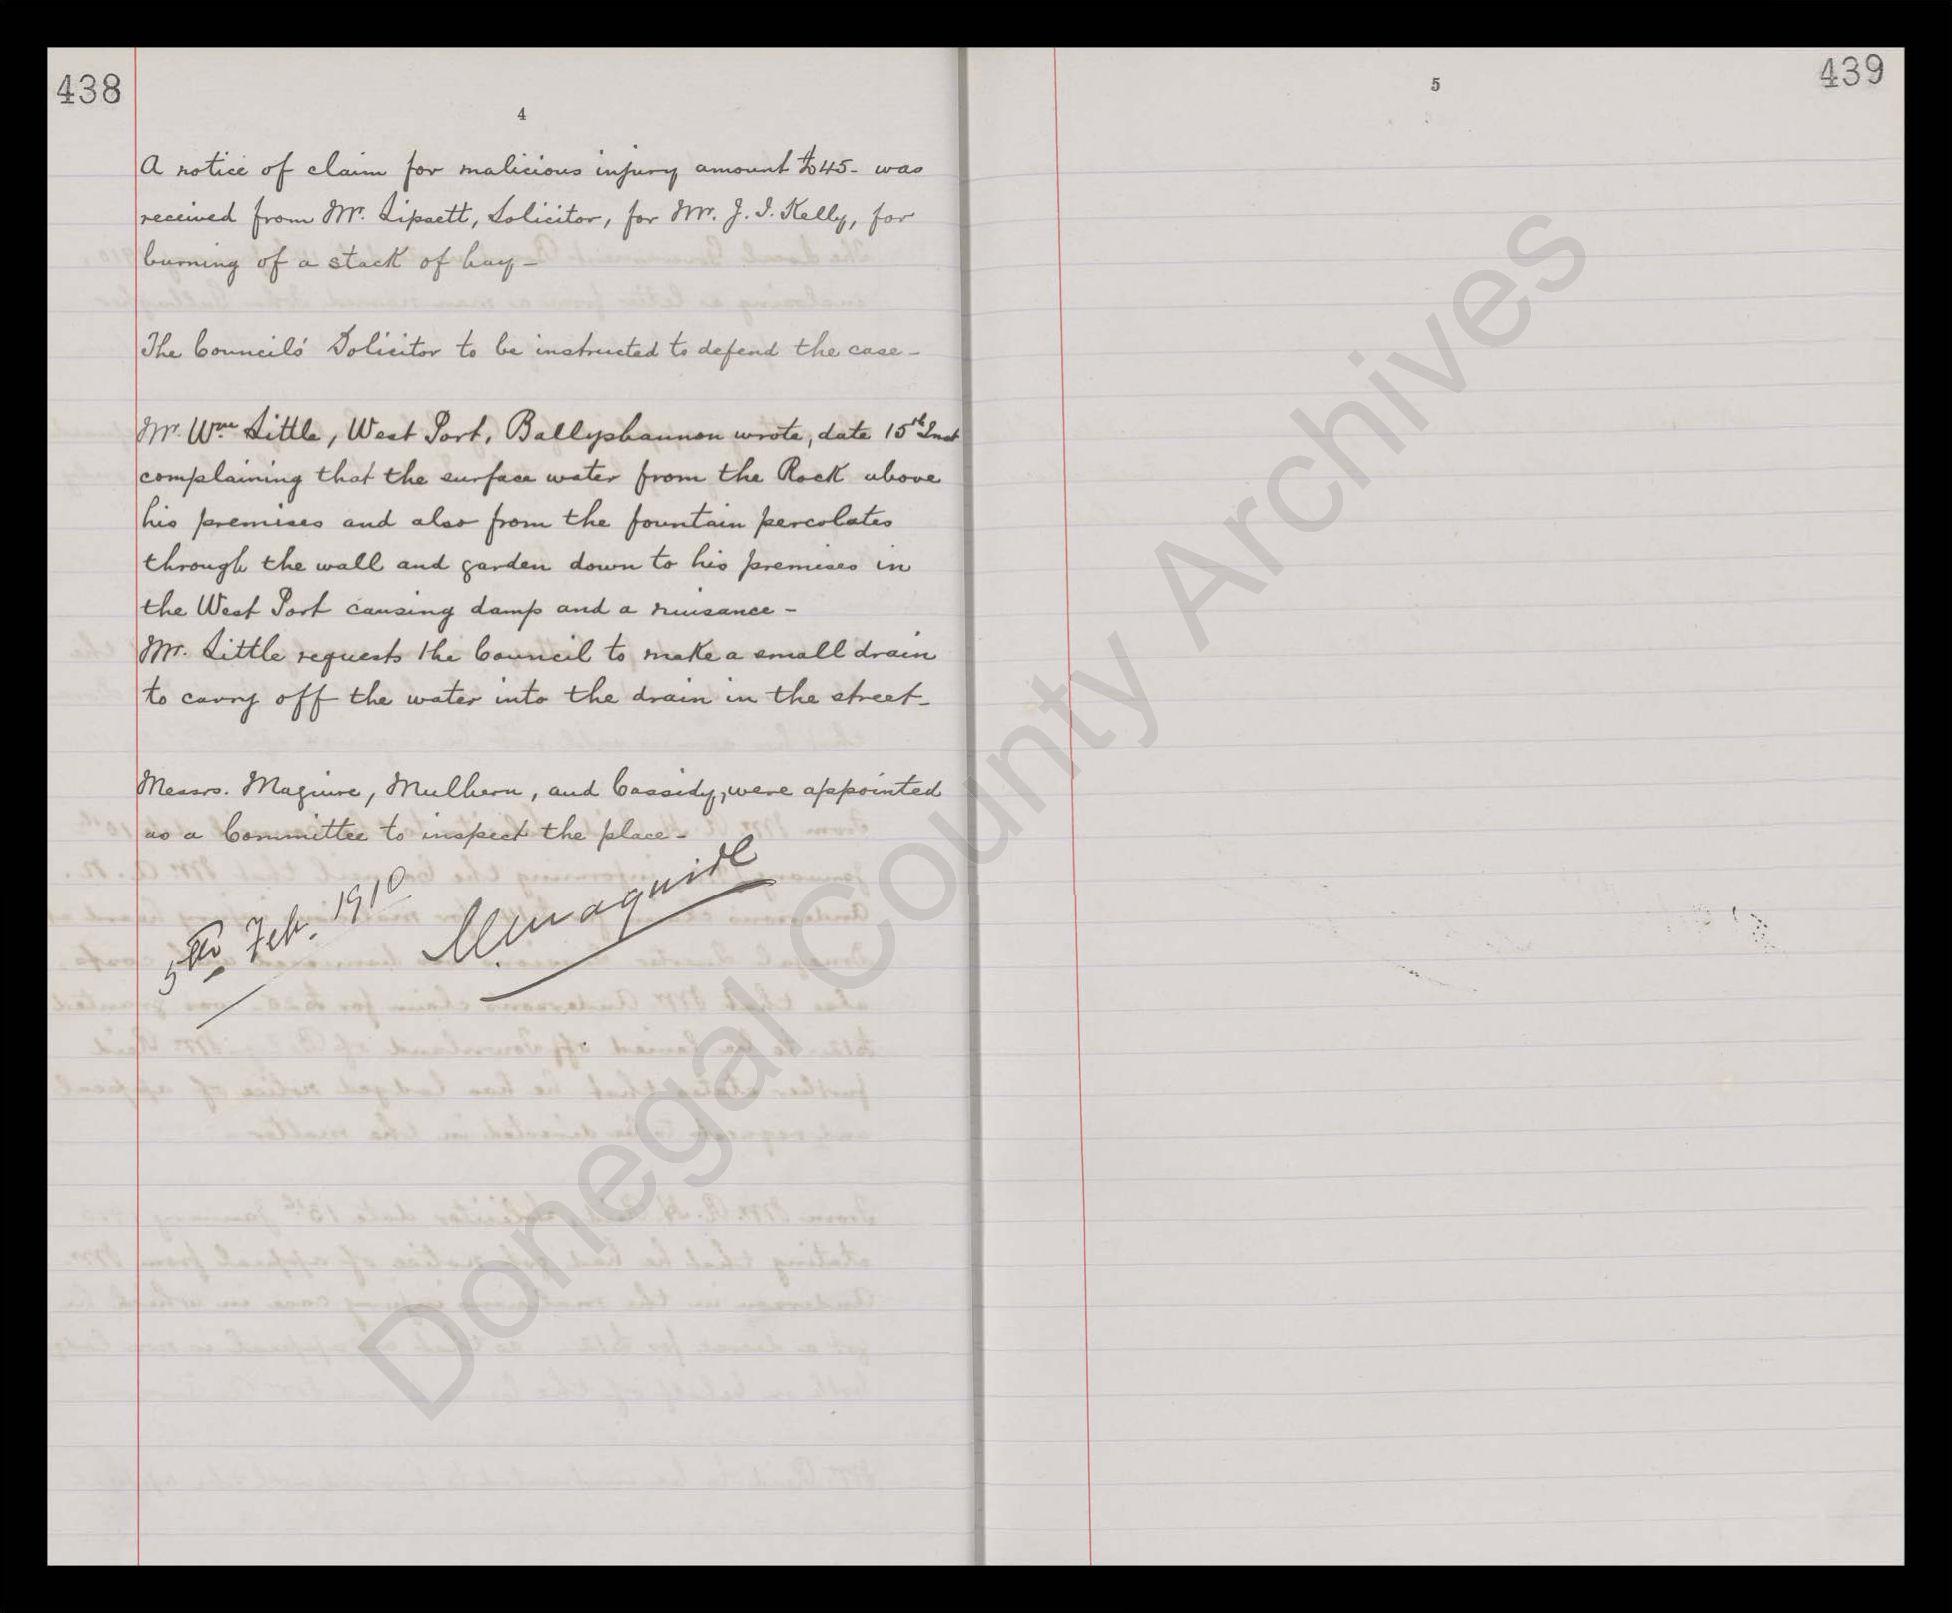 438
4
A notice of claim for malicious injury amount £45- was
received from Mr. Lipsett, Solicitor, for Mr. J. I. Kelly, for
burning of a stack of hay-
The Councils' Solicitor to be instructed to defend the case-
Mr. Wm Little, West Port, Ballyshannon wrote, date 15th Inst
complaining that the surface water from the Rock above
his premises and also from the fountain percolates
through the wall and garden down to his premises in
the West Port causing damp and a nuisance -
Mr. Little requests the Council to make a small drain
to carry off the water into the drain in the street-
Messrs. Maguire, Mulhern, and Cassidy, were appointed
as a Committee to inspect the place-
5th Feb. 1910
Maguire
5
439
Donegal County Archives